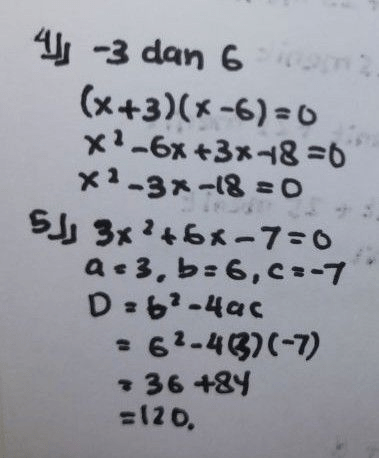 4) -3 dan 6
(x+3)(x-6)=0
x²-6x+3x-18=0
x²-3x-18=0
5) 3x²+6x-7=0
a=3, b=6, c=-7
D = b²-4ac
= 6²-4(3)(-7)
= 36+84
=120.